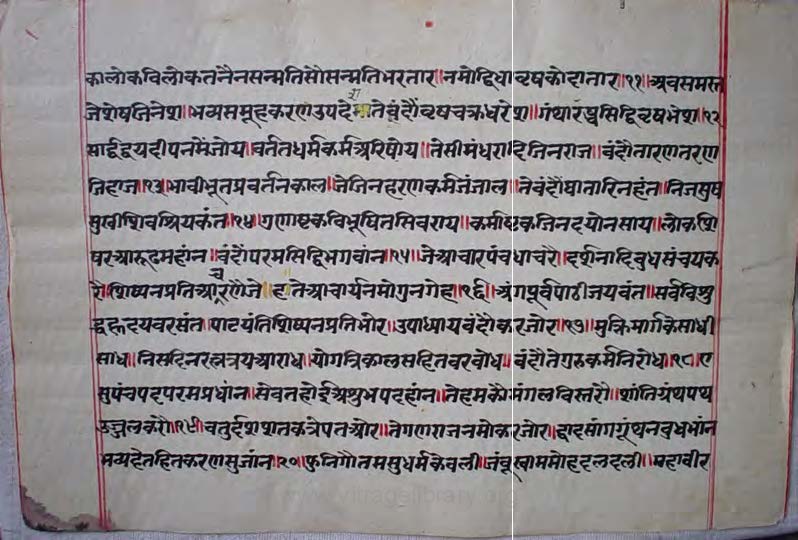 कालोकविलोकतनैनसन्मतिसौसन्मतिभरतार॥नमोद्विधावृषकोदातार॥११॥अवसमस्त
जेशेषजिनेश॥भव्यसमूहकरणउपदेश॥तेवंदौंवृषचक्रधरेश॥गंथारंभसिद्धिवृषभेश॥१२
सार्द्धद्वयदीपनमेंजोय॥वर्ततधर्मकर्मअरिषोय॥तेसीमंधरादिजिनराज॥वंदौंतारणतरण
जिहाज॥१३॥भावीभूतप्रवर्तनकाल॥जेजिनहरणकर्मजंजाल॥तेवंदौंघातारिनहंत॥निजसुष
सुषीशिवश्रियकंत॥१४॥गुणाष्टकविभूषितसिवराय॥कर्माष्टकजिनदयोनसाय॥लोकशि
षरआरूढमहांन॥वंदौंपरमसिद्धिभगवांन॥१५॥जेआचारपंचधाचरै॥दर्शनादिबुधसंचयक
रै॥शिष्यनप्रतिआचरणजे॥तेआचार्यनमोगुनगेह॥१६॥अंगपूर्वपाठीजयवंत॥सर्वविशु
द्धहृदयवरसंत॥पाटयंतिशिष्यनप्रतिभोर॥उपाध्यायवंदौंकरजोर॥१७॥मुक्तिमार्गकेसाधी
साध॥निसदिनरत्नत्रयआराध॥योगत्रिकालसहितवरबोध॥वंदौंतेगुरुकर्मनिरोध॥१८॥ए
सुपंचपदपरमप्रधांन॥सेवतहोईअशुभपदहांन॥तेहमकौमंगलविस्तरौ॥शांतिग्रंथपथ
उज्जुलकरौ॥१९॥चतुर्दशशतकत्रेपनऔर॥तेगणराजनमोकरजोर॥द्वादसांगग्रूंथनबुधभांन
भव्यहेतहितकरणसुजांन॥२०॥फुनिगौतमसुधर्मकेवली॥जंबूस्वाममोहदलदली॥महावीर
www.vitragelibrary.org